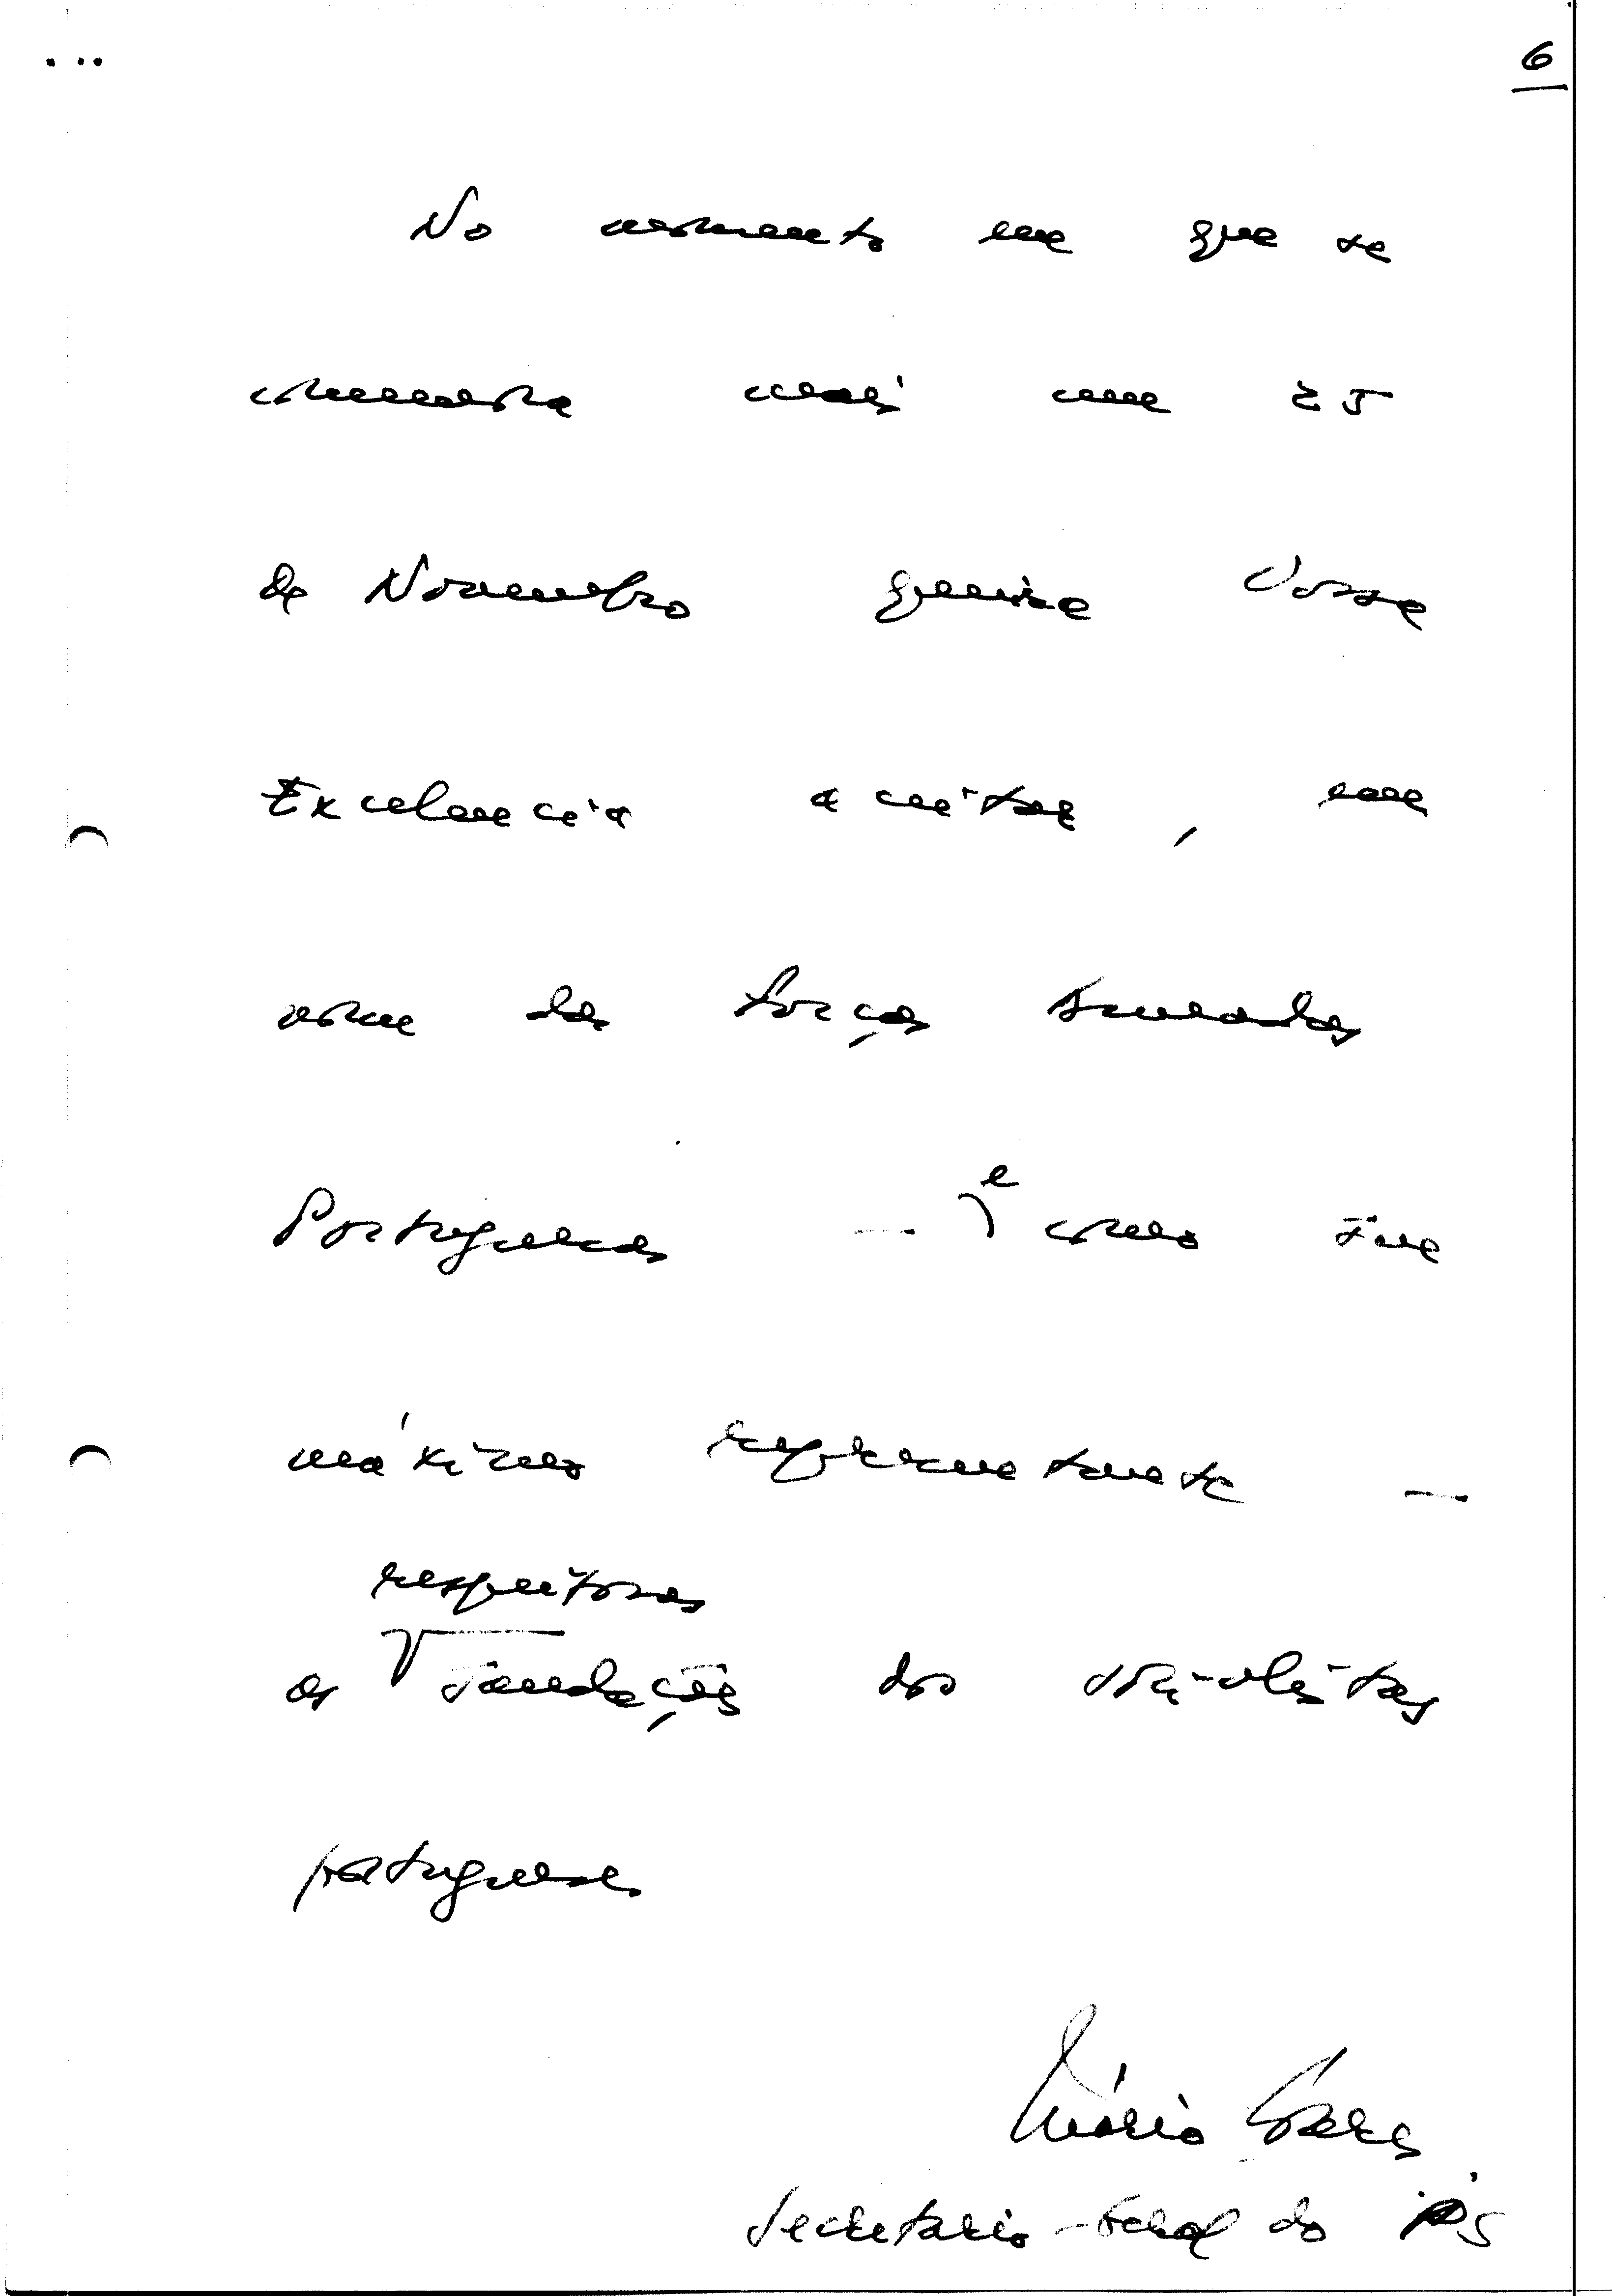 ...
6
No momento em que se
comemora mais um 25
de Novembro queira Vossa
Excelência aceitar, em
nome das Forças Armadas
Portuguesas — e como seu
máximo representante —
respeitosas
as saudações dos socialistas
portugueses
Mário Soares
Secretário-Geral do PS